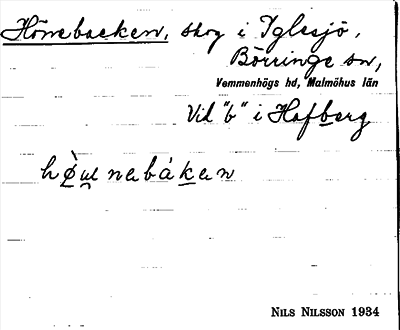 Hönebacken, skog i Iglesjö,
Börringe sn,
Vemmenhögs hd, Malmöhus län
Vid "b" i Hafberg
hø̀u̯nebákan
NILS NILSSON 1934